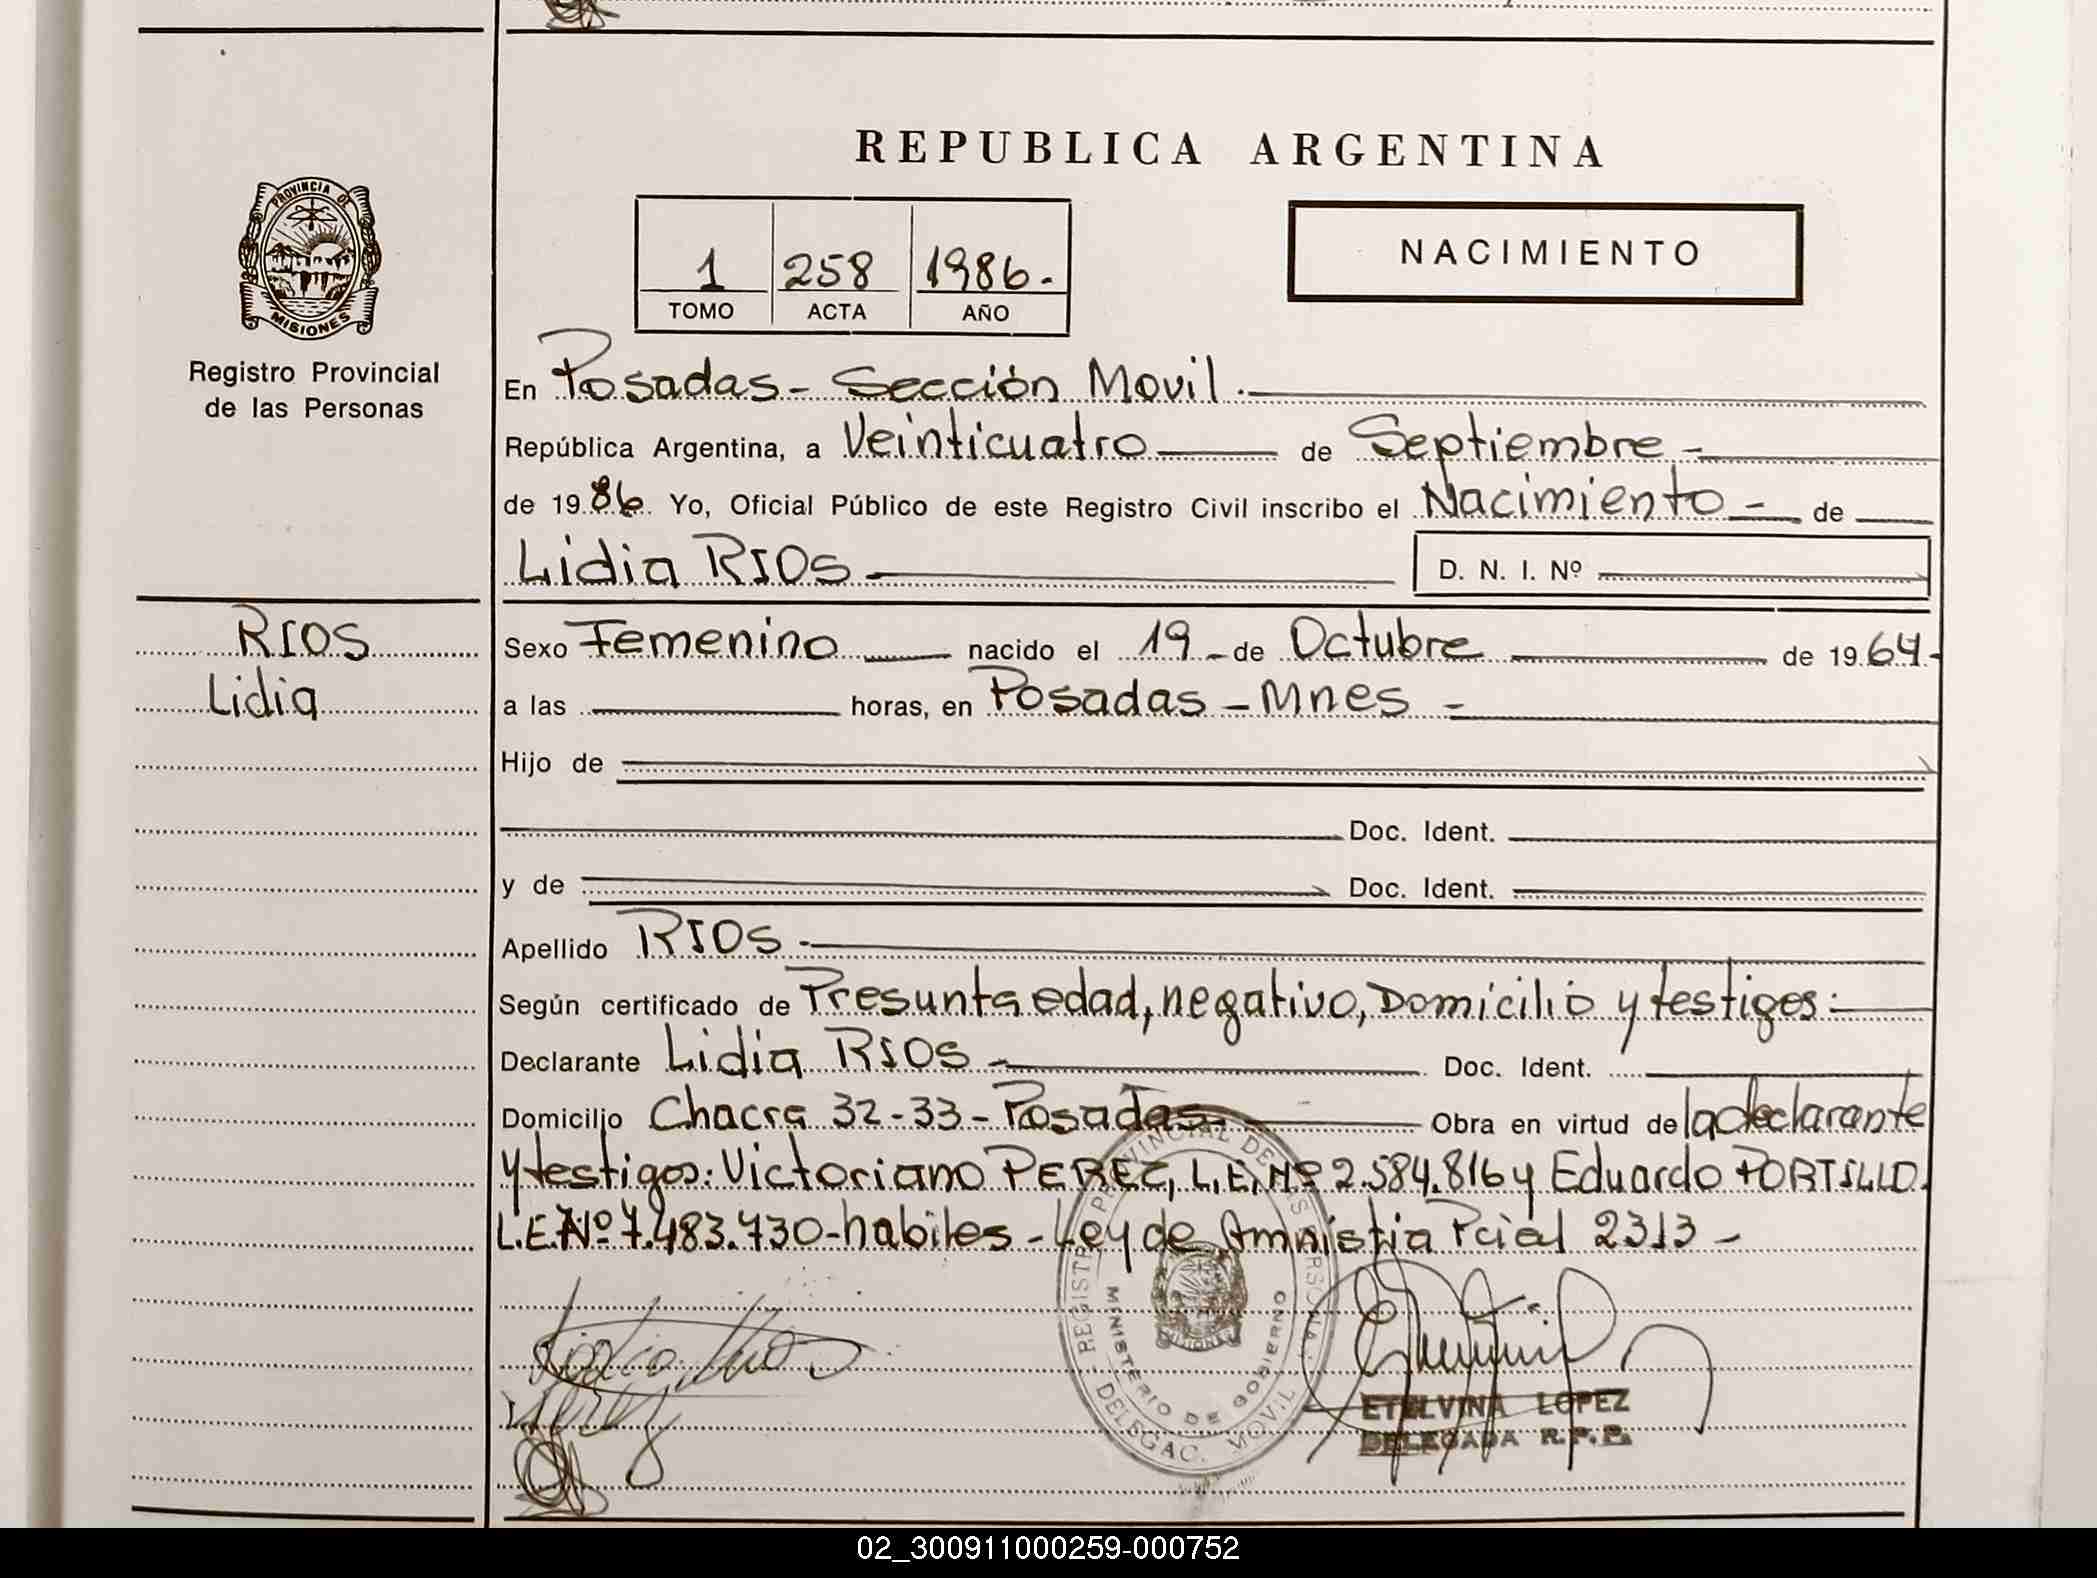 REPUBLICA ARGENTINA
PROVINCIA DE
MISIONES
Registro Provincial
de las Personas
1 258 1986.
TOMO ACTA AÑO
NACIMIENTO
En Posadas - Sección Movil.
República Argentina, a Veinticuatro de Septiembre -
de 1986. Yo, Oficial Público de este Registro Civil inscribo el Nacimiento - de
Lidia RIOS
D. N. I. Nº
RIOS
Lidia
Sexo Femenino nacido el 19 - de Octubre de 1964.-
a las horas, en Posadas - Mnes -
Hijo de
Doc. Ident.
y de Doc. Ident.
Apellido RIOS.-
Según certificado de Presunta edad, negativo, Domicilio y testigos:
Declarante Lidia RIOS - Doc. Ident.
Domicilio Chacra 32-33 - Posadas - Obra en virtud de la declarante
y testigos: Victoriano PEREZ, L.E.Nº 2.584.816 y Eduardo PORTILLO.
L.E.Nº 7.483.730 - habiles - Ley de Amnistia Pcial 2313 -
REGISTRO PROVINCIAL DE LAS PERSONAS
MINISTERIO DE GOBIERNO
DELEGAC. MOVIL
ETELVINA LOPEZ
DELEGADA R.P.P.
02_300911000259-000752